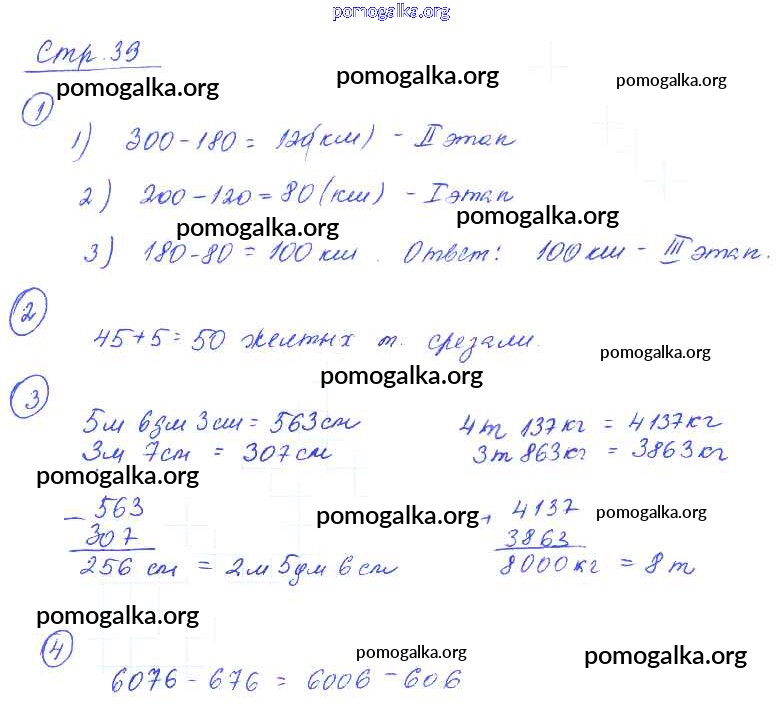 pomogalka.org
Стр. 39
pomogalka.org pomogalka.org pomogalka.org
1
1) 300 - 180 = 120 (км) - II этап
2) 200 - 120 = 80 (км) - I этап
pomogalka.org pomogalka.org
3) 180 - 80 = 100 км. Ответ: 100 км - III этап.
2
45 + 5 = 50 желтых т. срезали.
pomogalka.org
pomogalka.org
3
5м 6дм 3см = 563см 4т 137кг = 4137кг
3м 7см = 307см 3т 863кг = 3863кг
pomogalka.org
- 563 + 4137
pomogalka.org pomogalka.org
307 3863
256 см = 2м 5дм 6см 8000кг = 8т
pomogalka.org
4
pomogalka.org pomogalka.org
6076 - 676 = 6006 - 606